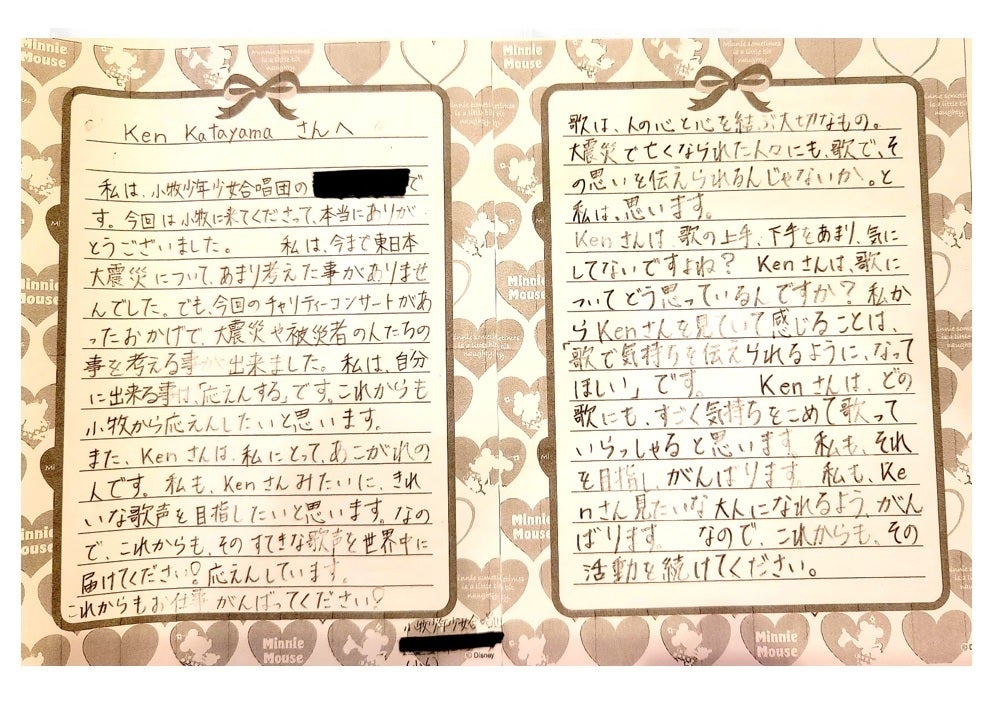 Ken Katayama さんへ
私は、小牧少年少女合唱団の で
す。今回は小牧に来てくださって、本当にありが
とうございました。 私は、今まで東日本
大震災について、あまり考えた事がありませ
んでした。でも、今回のチャリティーコンサートがあ
ったおかげで、大震災や被災者の人たちの
事を考える事が出来ました。私は、自分
に出来る事は、「応えんする」です。これからも
小牧から応えんしたいと思います。
また、Kenさんは、私にとって、あこがれの
人です。私も、Kenさんみたいに、きれ
いな歌声を目指したいと思います。なの
で、これからも、そのすてきな歌声を世界中に
届けてください!応えんしています。
これからもお仕事がんばってください!
小牧少年少女合
(小6)
歌は、人の心と心を結ぶ大切なもの。
大震災で亡くなられた人々にも、歌で、そ
の思いを伝えられるんじゃないか。と
私は、思います。
Kenさんは、歌の上手、下手をあまり、気に
してないですよね? Kenさんは、歌に
ついてどう思っているんですか?私か
らKenさんを見ていて感じることは、
「歌で気持ちを伝えられるように、なって
ほしい」です。 Kenさんは、どの
歌にも、すごく気持ちをこめて歌って
いらっしゃると思います。私も、それ
を目指し、がんばります。私も、Ke
nさん見たいな大人になれるよう、がん
ばります。 なので、これからも、その
活動を続けてください。
Minnie Mouse
Minnie sometimes is a little bit naughty.
© Disney